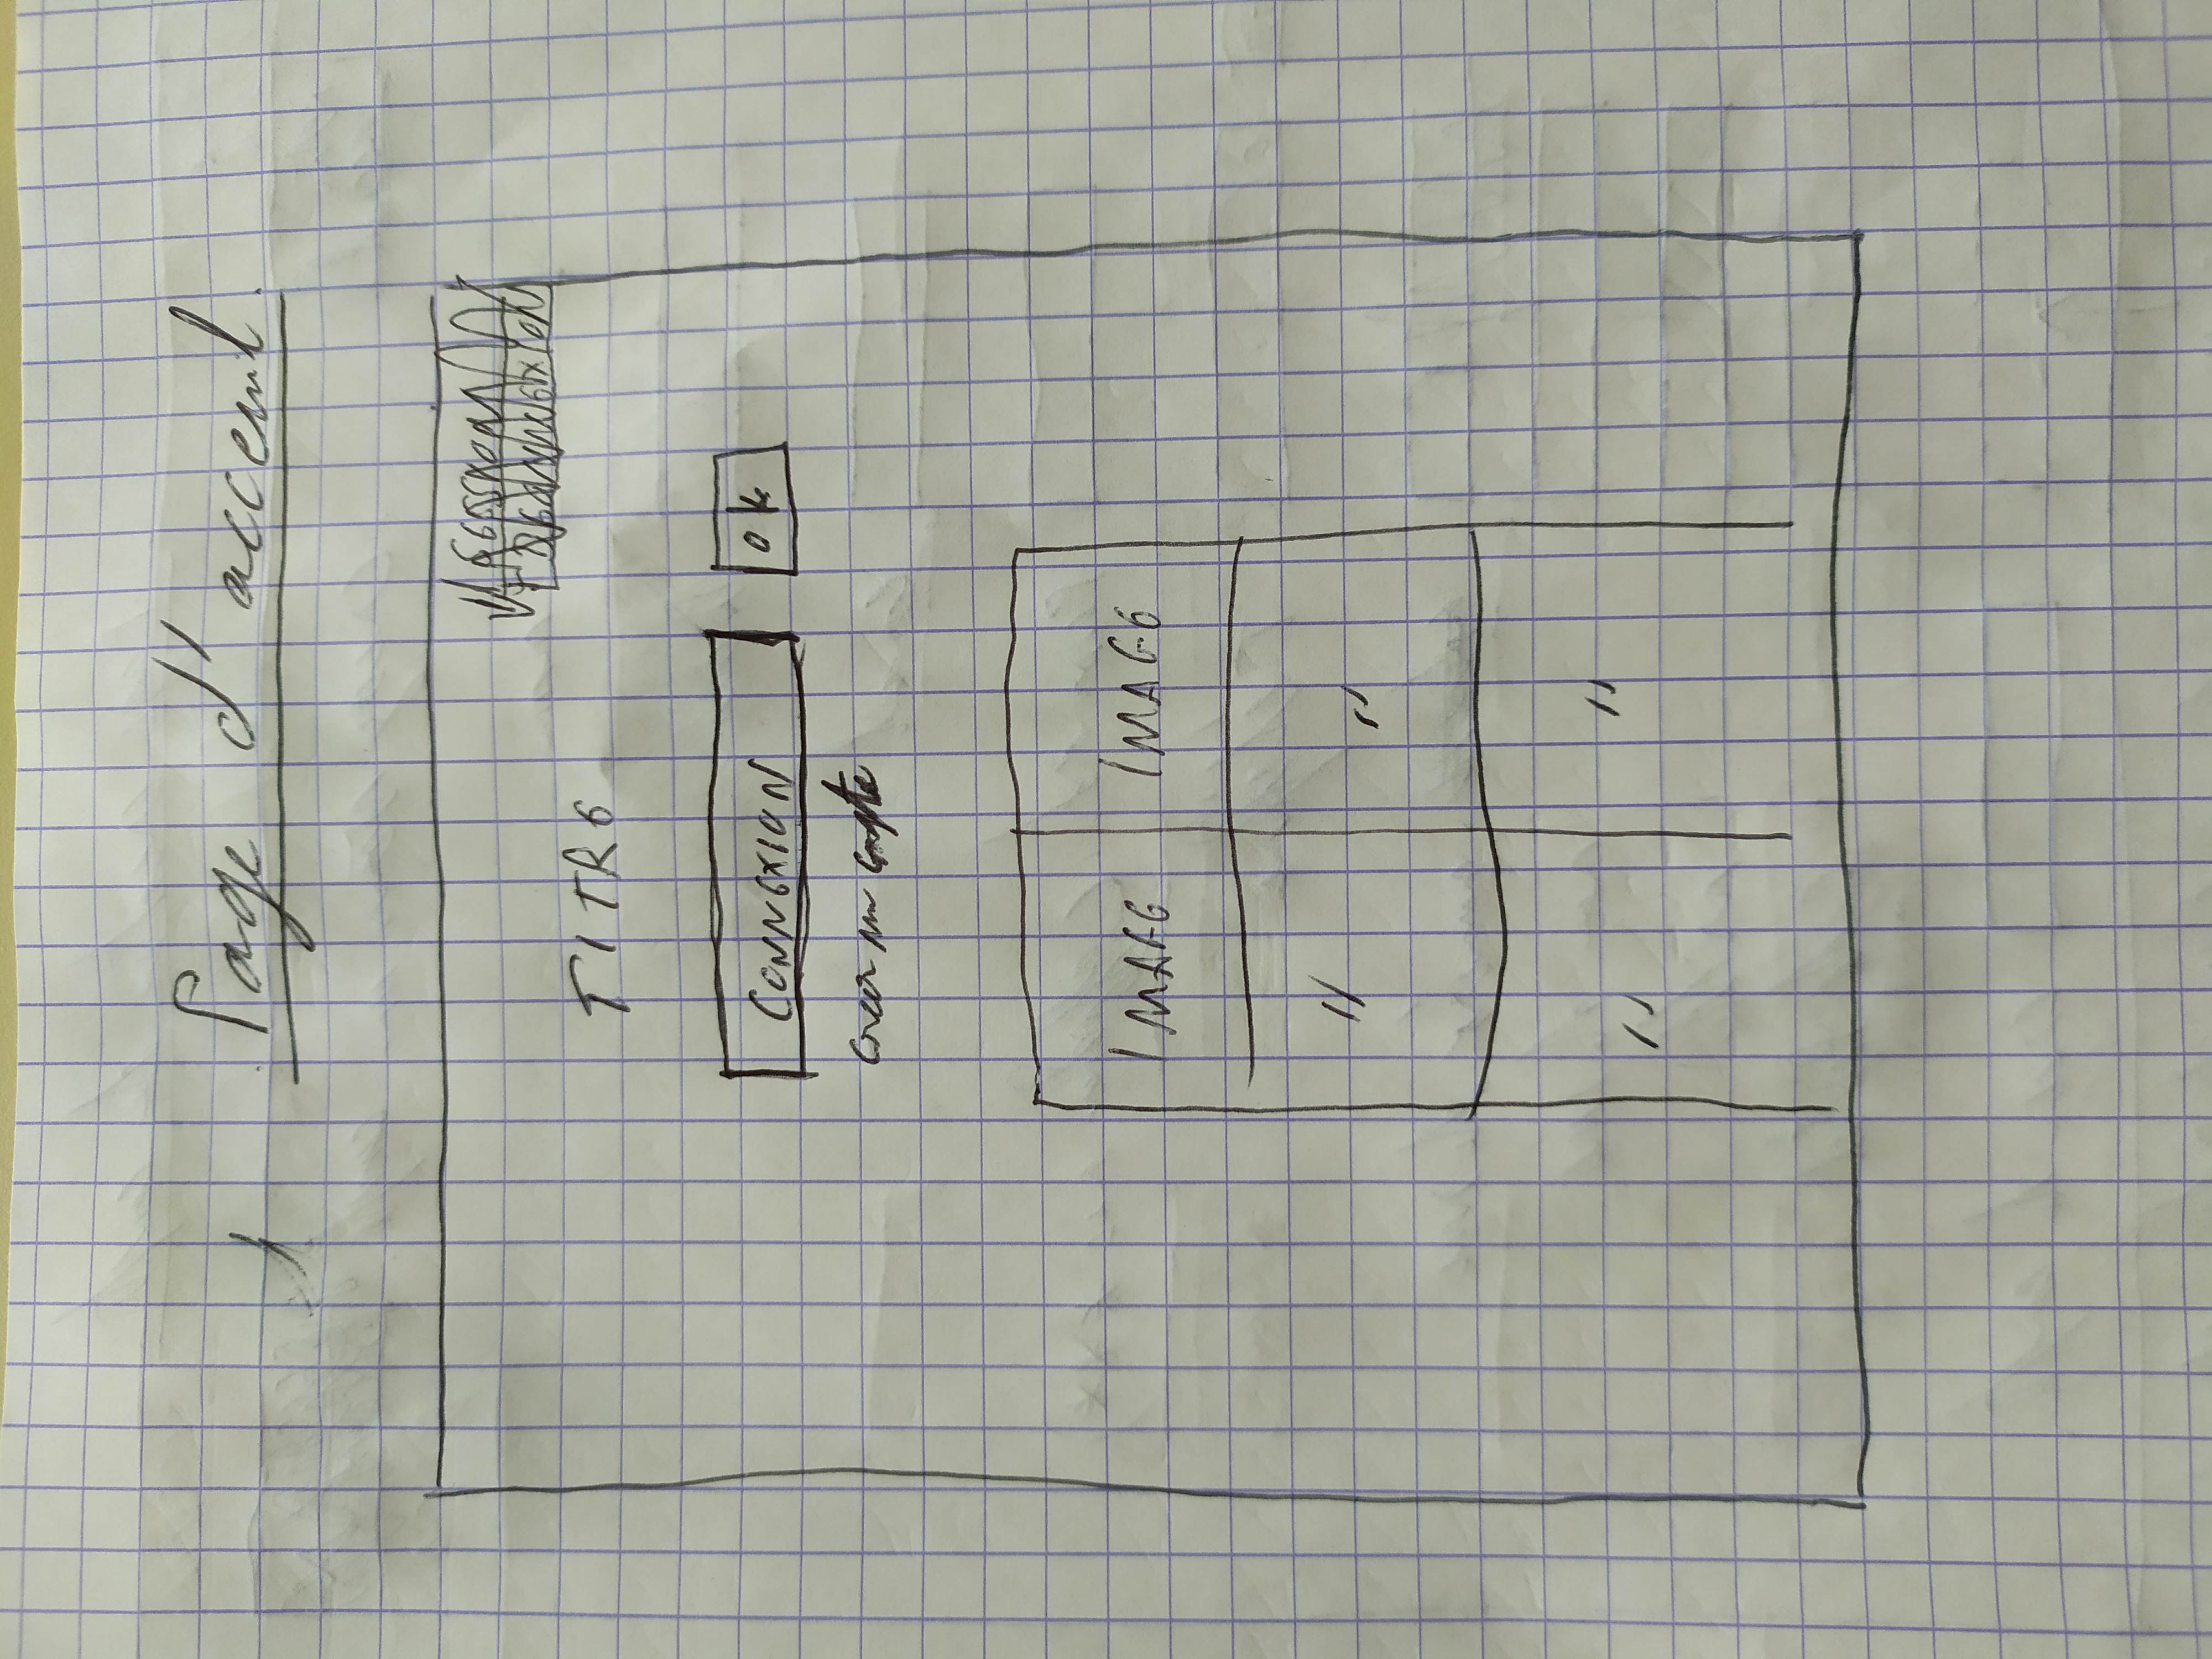 Page d'acceuil
TITRE
CONNEXION OK
Creer un compte
IMAGE IMAGE
" "
" "